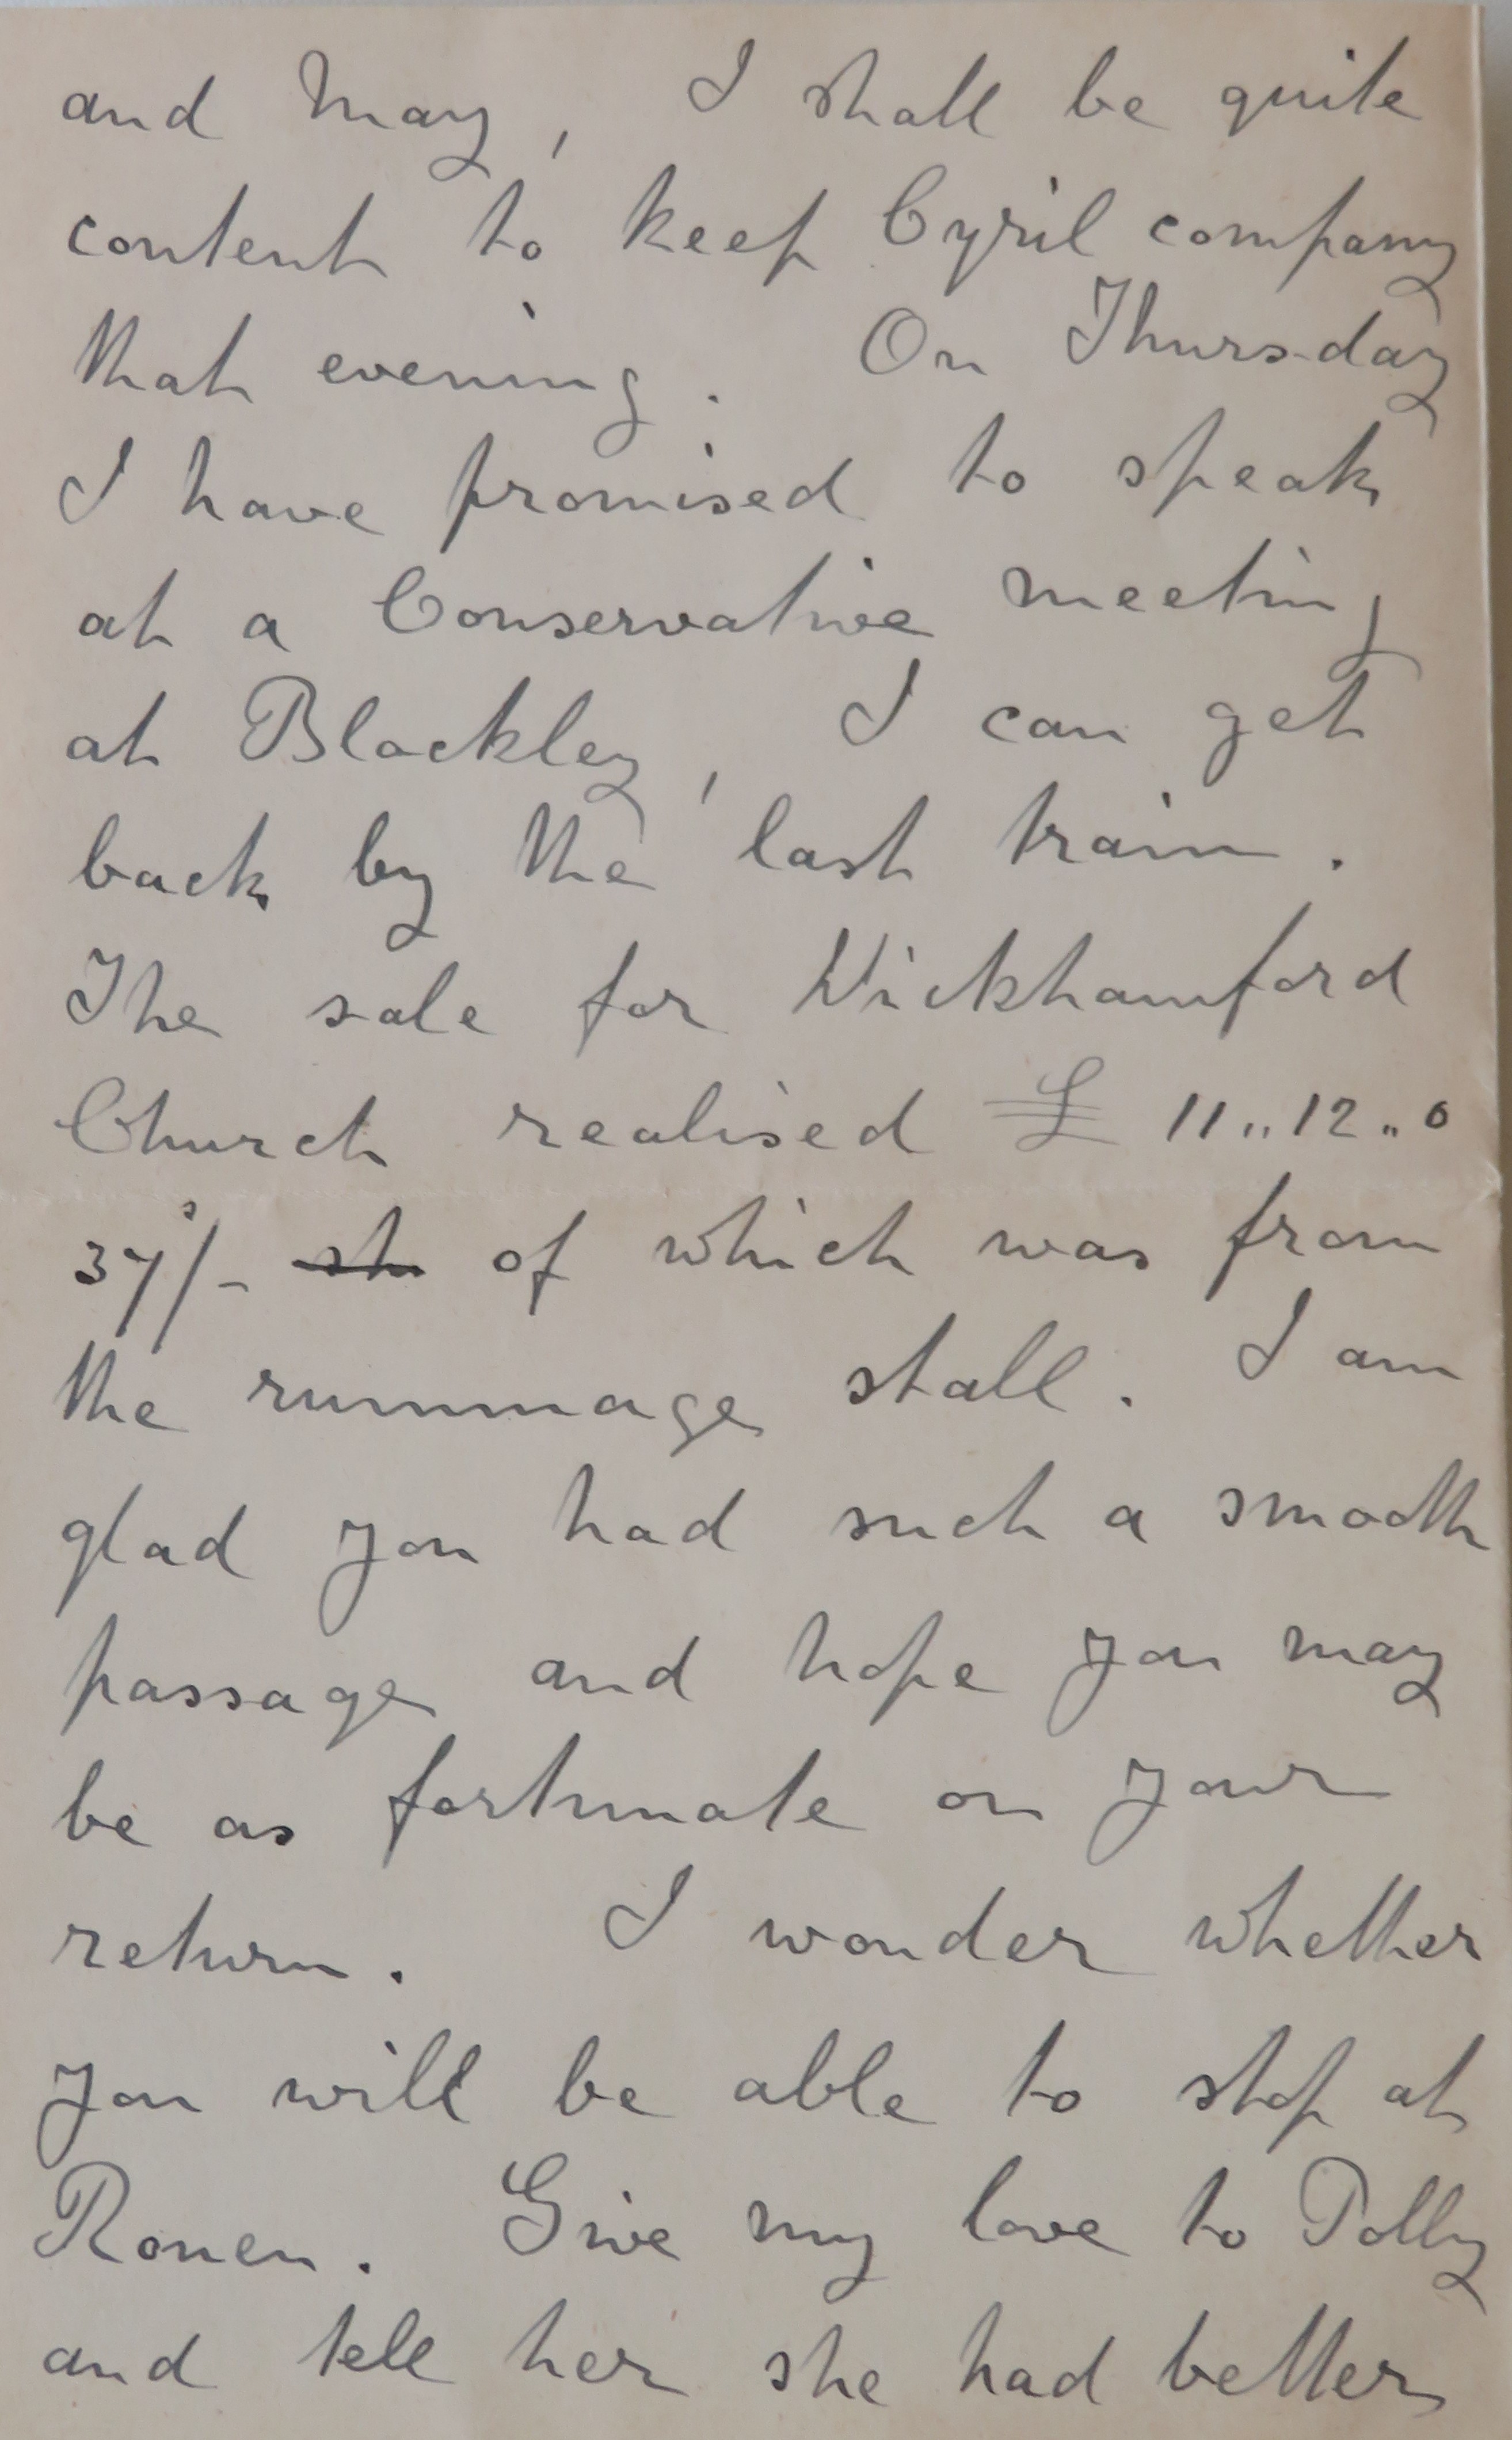 and May, I shall be quite
content to keep Cyril company
that evening. On Thursday
I have promised to speak
at a Conservative meeting
at Blockley, I can get
back by the last train.
The sale for Wickhamford
Church realised £ 11"12"0
37s/- sh of which was from
the rummage stall. I am
glad you had such a smooth
passage and hope you may
be as fortunate on your
return. I wonder whether
you will be able to stop at
Rouen. Give my love to Polly
and tell her she had better